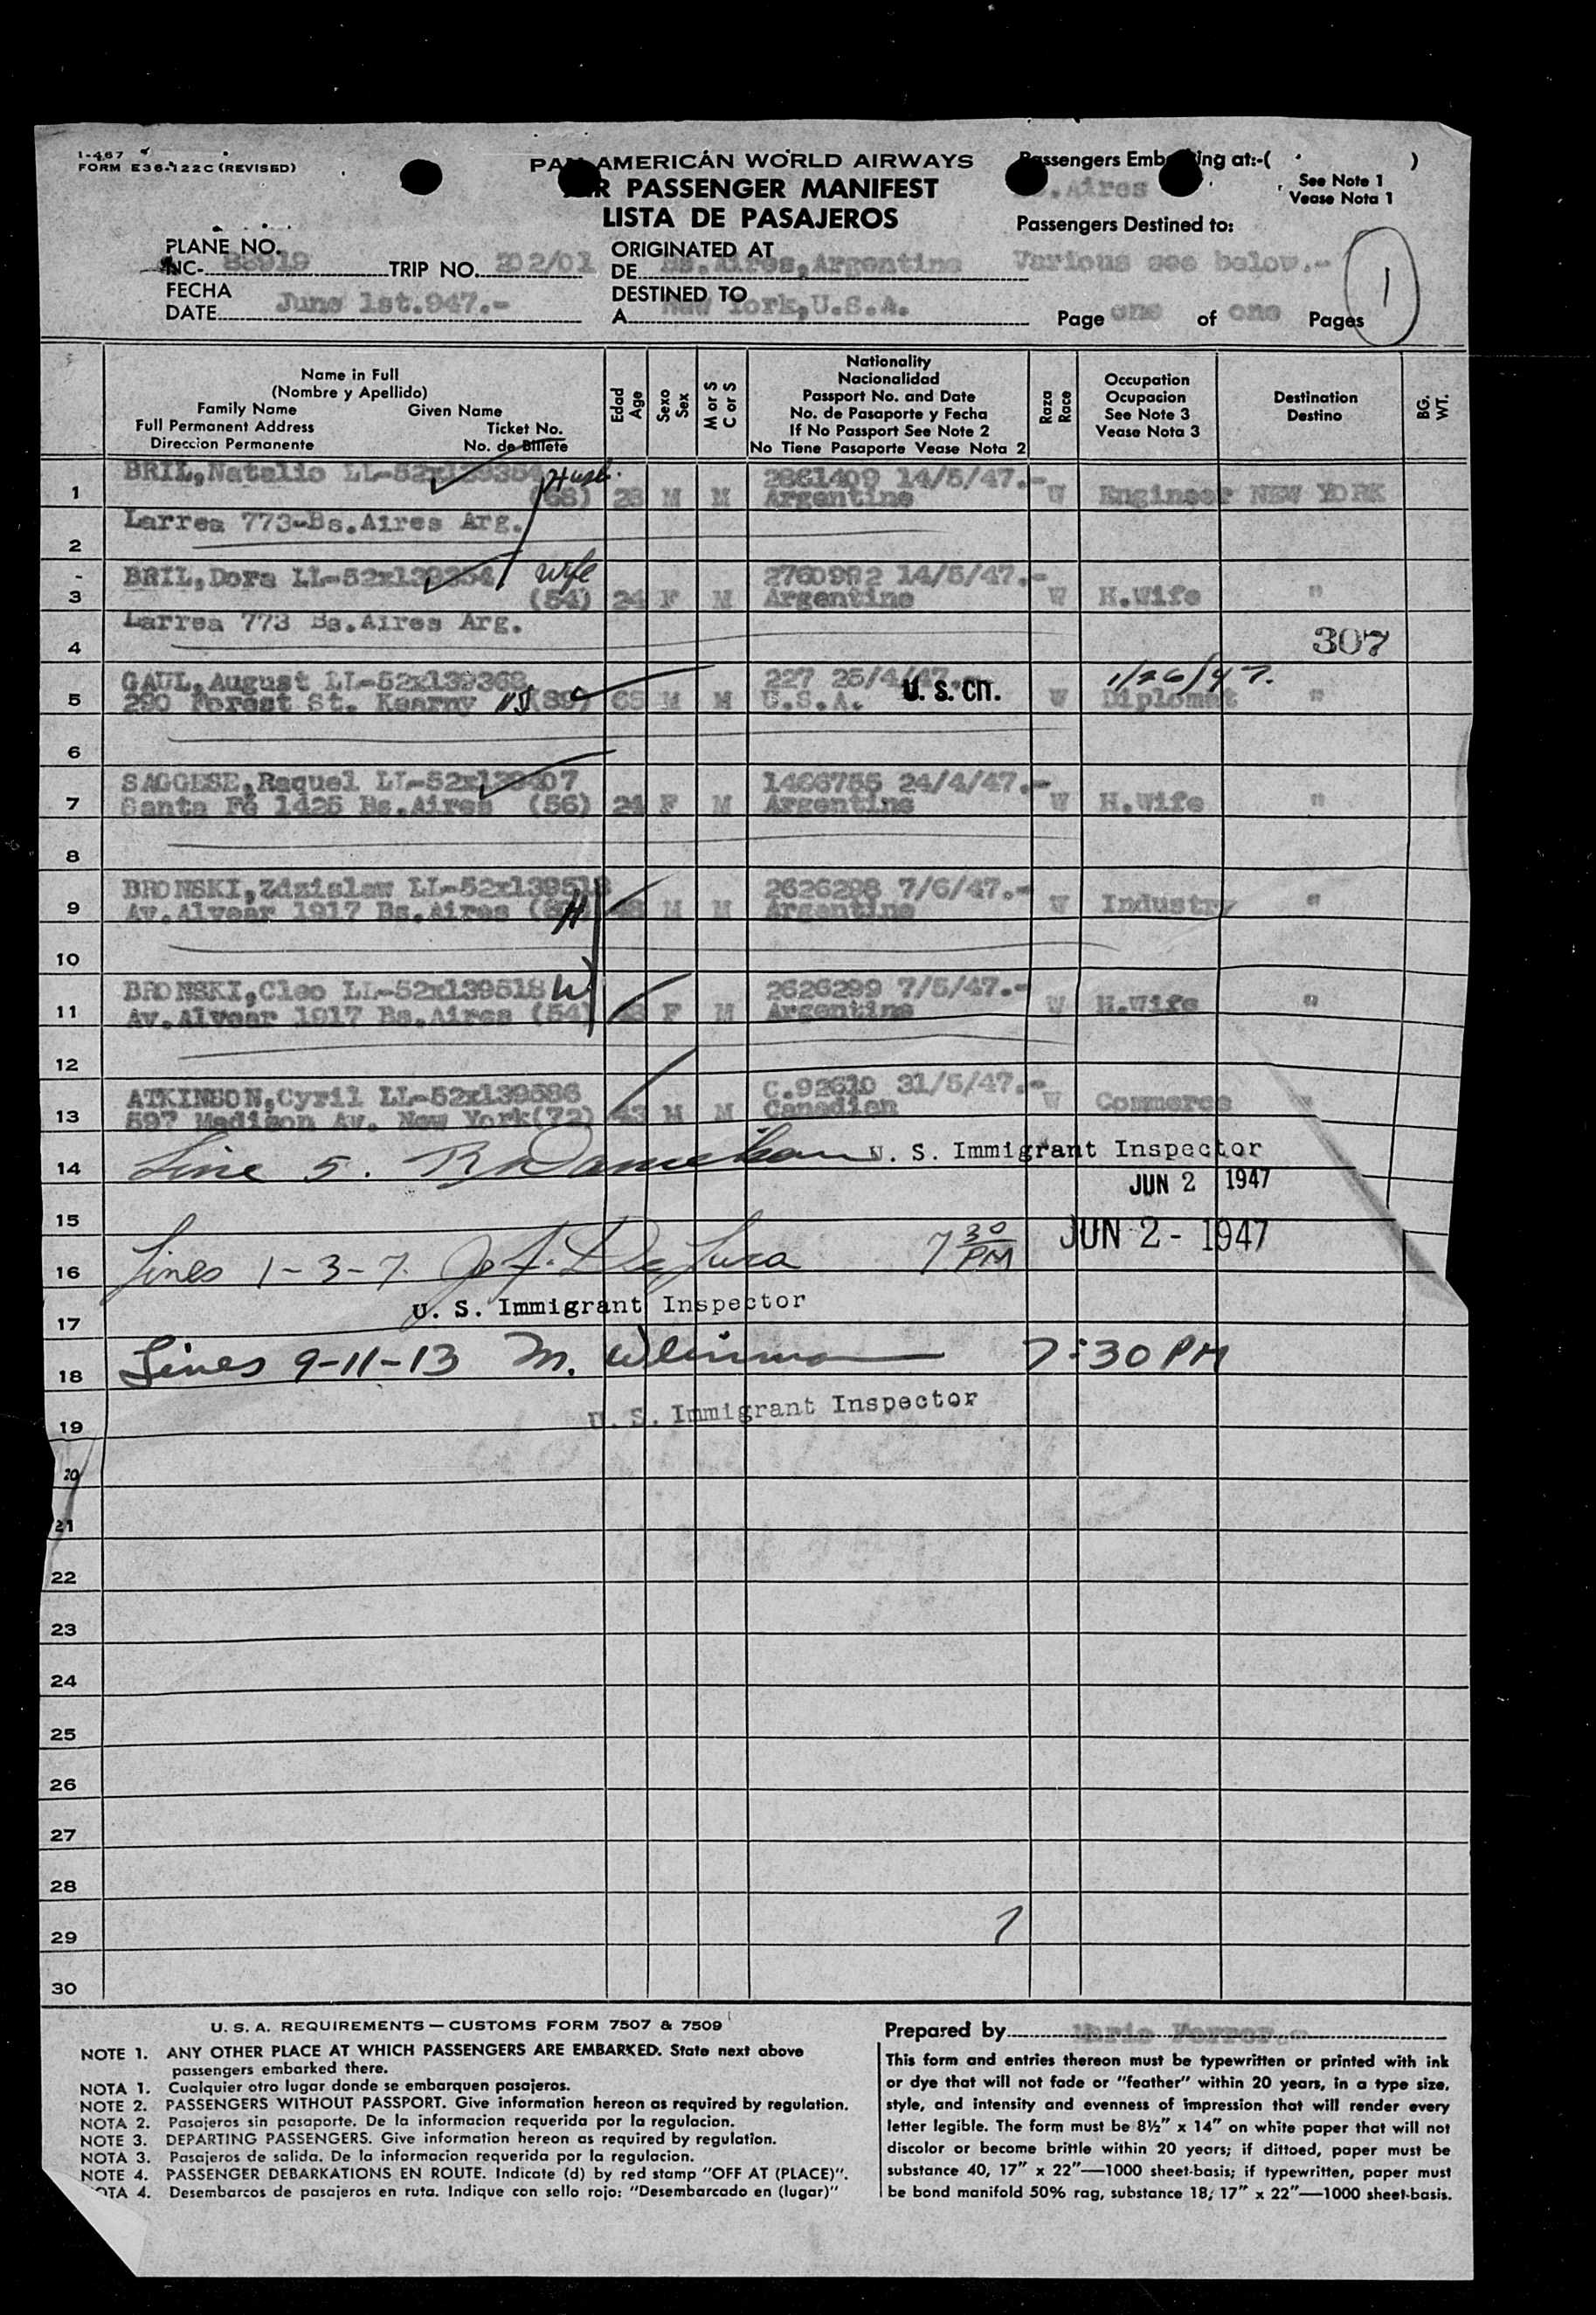 I-467
FORM E36-122C (REVISED)
PAN AMERICAN WORLD AIRWAYS
AIR PASSENGER MANIFEST
LISTA DE PASAJEROS
Passengers Embarking at:-( )
Bs.Aires
See Note 1
Vease Nota 1
Passengers Destined to:
Various see below.-
PLANE NO.
NC- 88919 TRIP NO. 202/01
FECHA
DATE June 1st.947.-
ORIGINATED AT
DE Bs.Aires,Argentina
DESTINED TO
A New York,U.S.A.
Page one of one Pages
1
Name in Full
(Nombre y Apellido)
Family Name Given Name
Full Permanent Address Ticket No.
Direccion Permanente No. de Billete
Edad
Age
Sexo
Sex
M or S
C or S
Nationality
Nacionalidad
Passport No. and Date
No. de Pasaporte y Fecha
If No Passport See Note 2
No Tiene Pasaporte Vease Nota 2
Raza
Race
Occupation
Ocupacion
See Note 3
Vease Nota 3
Destination
Destino
BG.
WT.
BRIL,Natalio LL-52x139354 Husb. 2861409 14/5/47.-
1 (68) 28 M M Argentine W Engineer NEW YORK
Larrea 773-Bs.Aires Arg.
2
BRIL,Dora LL-52x139354 Wife 2760992 14/5/47.-
3 (54) 24 F M Argentine W H.Wife "
Larrea 773 Bs.Aires Arg.
4 307
GAUL,August LL-52x139368 227 25/4/47.- U. S. CIT. 1/26/47.
5 290 Forest St. Kearny NJ (89) 65 M M U.S.A. W Diplomat "
6
SAGGESE,Raquel LL-52x139407 1466755 24/4/47.-
7 Santa Fé 1425 Bs.Aires (56) 24 F M Argentine W H.Wife "
8
BRONSKI,Zdzislaw LL-52x139518 2626298 7/6/47.-
9 Av.Alvear 1917 Bs.Aires H 48 M M Argentine W Industry "
10
BRONSKI,Cleo LL-52x139518 W 2626299 7/5/47.-
11 Av.Alvear 1917 Bs.Aires (54) F M Argentine W H.Wife "
12
ATKINSON,Cyril LL-52x139586 C.92610 31/5/47.-
13 597 Madison Av. New York(72) 43 M M Canadian W Commerce "
14 Line 5. U. S. Immigrant Inspector
JUN 2 1947
15
JUN 2 - 1947
16 Lines 1-3-7. 7 30 PM
17 U. S. Immigrant Inspector
18 Lines 9-11-13 M. 7:30 PM
19 U. S. Immigrant Inspector
20
21
22
23
24
25
26
27
28
29 7
30
U. S. A. REQUIREMENTS — CUSTOMS FORM 7507 & 7509
NOTE 1. ANY OTHER PLACE AT WHICH PASSENGERS ARE EMBARKED. State next above
passengers embarked there.
NOTA 1. Cualquier otro lugar donde se embarquen pasajeros.
NOTE 2. PASSENGERS WITHOUT PASSPORT. Give information hereon as required by regulation.
NOTA 2. Pasajeros sin pasaporte. De la informacion requerida por la regulacion.
NOTE 3. DEPARTING PASSENGERS. Give information hereon as required by regulation.
NOTA 3. Pasajeros de salida. De la informacion requerida por la regulacion.
NOTE 4. PASSENGER DEBARKATIONS EN ROUTE. Indicate (d) by red stamp "OFF AT (PLACE)".
NOTA 4. Desembarcos de pasajeros en ruta. Indique con sello rojo: "Desembarcado en (lugar)"
Prepared by
This form and entries thereon must be typewritten or printed with ink
or dye that will not fade or "feather" within 20 years, in a type size,
style, and intensity and evenness of impression that will render every
letter legible. The form must be 8½" x 14" on white paper that will not
discolor or become brittle within 20 years; if dittoed, paper must be
substance 40, 17" x 22"—1000 sheet-basis; if typewritten, paper must
be bond manifold 50% rag, substance 18; 17" x 22"—1000 sheet-basis.